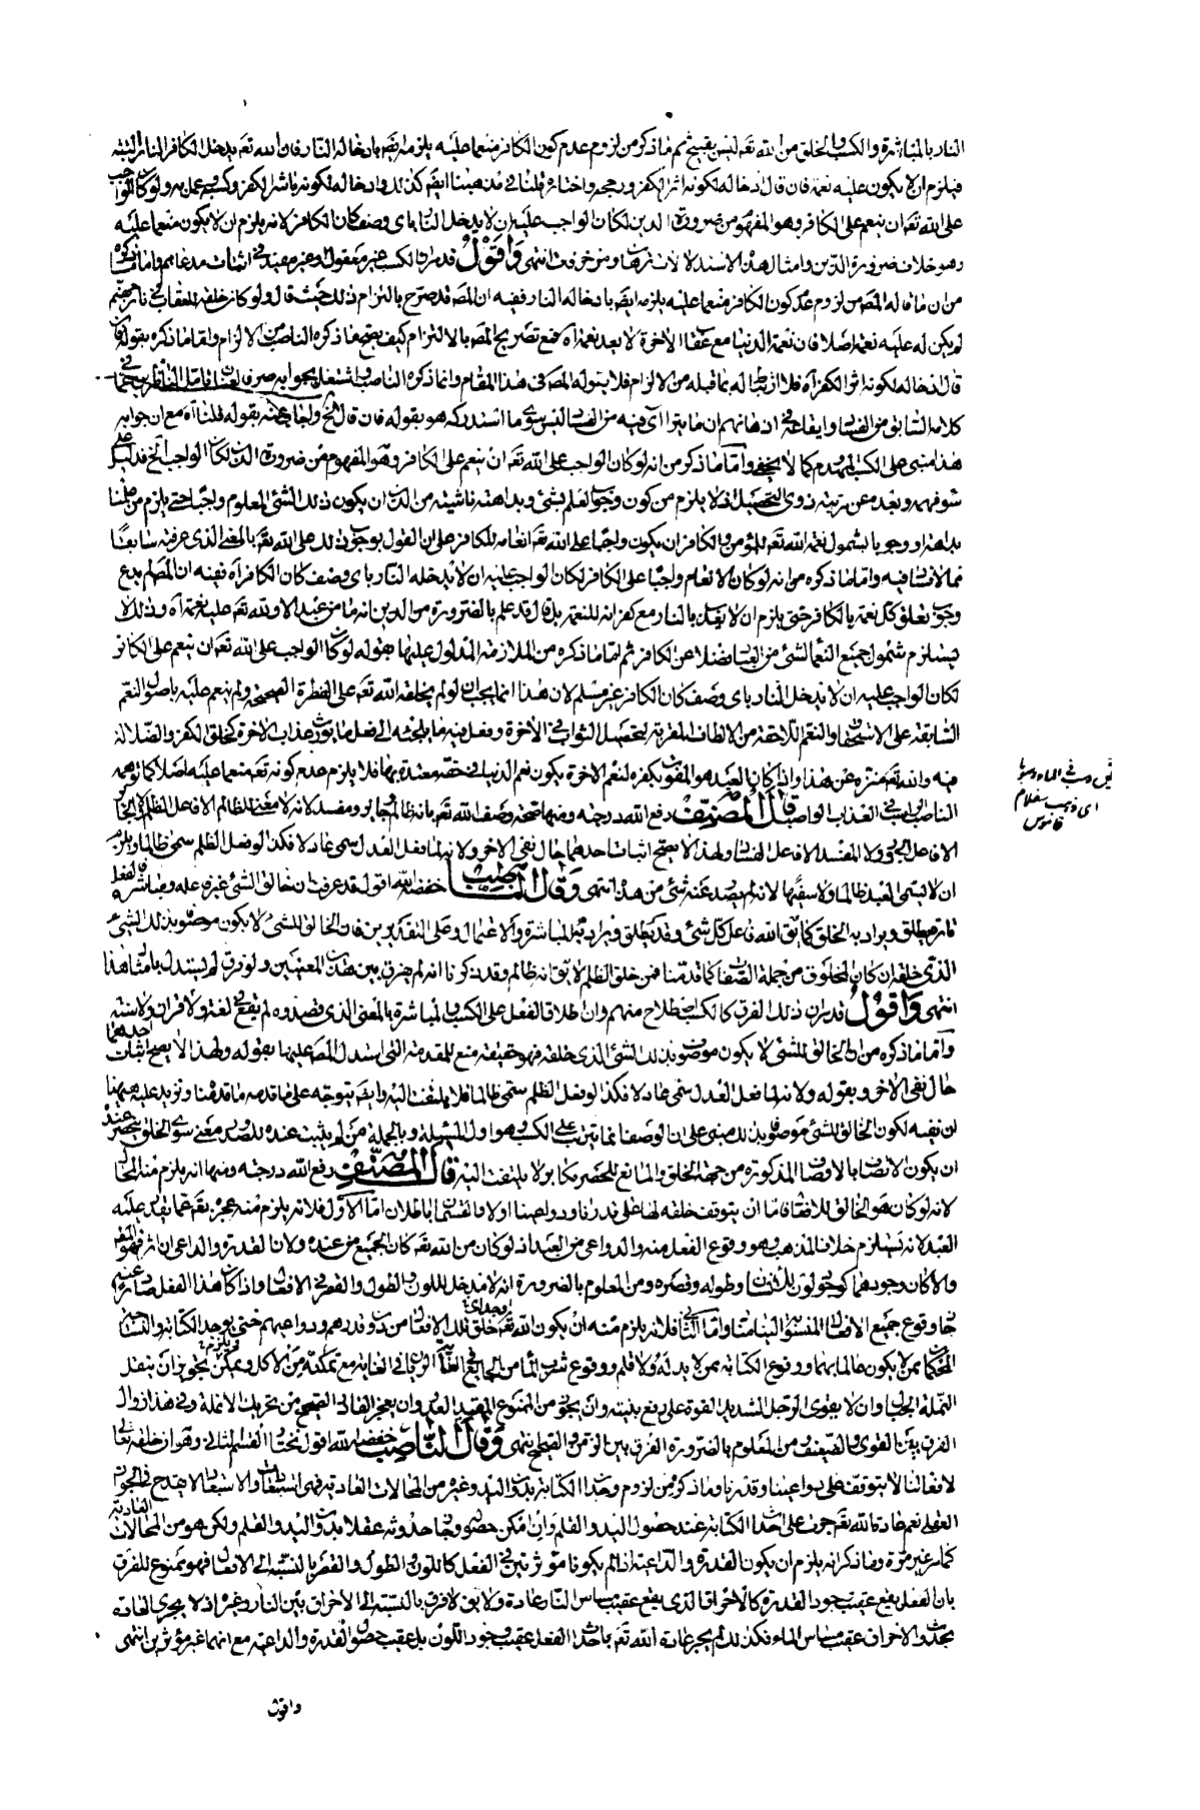 النار بالمباشرة والكسب والخلق من الله تعه ليس بقبيح ثم ما ذكر من لزوم عدم كون الكافر منعما عليه يلزمه ايضه بادخاله النار فان الله تعه يدخل الكافر النار البتة
فيلزم ان لا يكون عليه نعمة فان قال ادخاله لكونه اثر الكفر ورجحه واختاره قلنا في مذهبنا ايضه كذلك وادخاله لكونه باشر الكفر وكسبه وعمل به ولو كان الواجب
على الله تعه ان ينعم على الكافر وهو المفهوم من ضرورة الدين لكان الواجب عليه ان لا يدخل النار باى وصف كان الكافر لانه يلزم ان لا يكون منعما عليه
وهو خلاف ضرورة الدين وامثال هذه الاستدلالات ترهات ومزخرفات انتهى وَاَقُوْلُ قد مر ان الكسب غير معقول وغير مفيد في اثبات مدعاهم واما ما ذكره
من ان ما قاله المصه من لزوم عدم كون الكافر منعما عليه يلزمه ايضه بادخاله النار ففيه ان المصه قد صرح بالتزام ذلك حيث قال ولو كان خلقه للعقاب في نار جهنم
لم يكن له عليه نعمة اصلا فان نعمة الدنيا مع عقاب الاخرة لا يعد نعمة آه فمع تصريح المصه بالالتزام كيف يتجه ما ذكره الناصب من الالزام واما ما ذكره بقوله فان
قال ادخاله لكونه اثر الكفر آه فلا ارتباط له بما قبله من الالزام فلا يتوله المصه في هذا المقام وانما ذكره الناصب واشتغل بجوابه صرفا لعنان تأمل الناظر
كلامه السابق من الفساد وايقاعه في ان ما يترا آى فيه من الفساد ليس سوى ما استدركه هو بقوله فان قال الخ واجاب عنه بقوله قلنا آه مع ان جوابه
هذا مبنى على الكسب المهدم كما لا يخفى وَاَمّا ما ذكر من انه لو كان الواجب على الله تعه ان ينعم على الكافر وهو المفهوم من ضرورة الدين لكان الواجب الخ فدليل على
سوء فهمه وبعده عن رتبة ذوى التحصيل اذ لا يلزم من كون وجوب العلم بشئ وبداهته ناشيته من الدين ان يكون ذلك الشئ المعلوم واجبا حتى يلزم من علمنا
بداهة او وجوبا بشمول نعمة الله تعه للمؤمن والكافر ان يكون واجبا على الله تعه انعامه للكافر على ان القول بوجوب ذلك على الله تعه بالمعنى الذى عرفته سابقًا
مما لا فساد فيه واما ما ذكره من انه لو كان الانعام واجبا على الكافر لكان الواجب عليه ان لا يدخله النار باى وصف كان الكافر آه ففيه ان المصه لم يدع
وجوب تعلق كل نعمة بالكافر حتى يلزم ان لا يعذب بالنار مع كفرانه للنعمة بل قال قد علم بالضرورة من الدين انه ما من عبد الا ولله تعه عليه نعمة آه وذلك لا
يستلزم شمول جميع النعم لشئ من العباد فضلا عن الكافر ثم اما ما ذكره من الملازمة المدلول عليها بقوله لو كان الواجب على الله تعه ان ينعم على الكافر
لكان الواجب عليه ان لا يدخل النار باى وصف كان الكافر غير مسلم لان هذا انما يجب ان لو لم يخلقه الله تعه على الفطرة الصحيحة ولم ينعم عليه باصول النعم
السابقة على الاستحقاق والنعم اللاحقة من الالطاف المقربة لتحصيل الثواب في الاخرة وفعل فيه ما يلجئه الى فعل ما يورث عذاب الاخرة كخلق الكفر والضلالة
فيه والله تعه منزه عن هذا واذا كان العبد هو المفوت بكفره لنعم الاخرة يكون نعم الدنيا في حقه معتدة بها فلا يلزم عدم كونه تعه منعما عليه اصلا كما توهمه
الناصب في العذاب الواصب قَالَ الْمُصَنِّفُ رفع الله درجته ومنها صحة وصف الله تعه بانه ظالم جاير ومفسد لانه لا معنى للظالم الا فاعل الظلم ولا الجاير
الا فاعل الجور ولا المفسد الا فاعل الفساد ولهذا لا يصح اثبات احدهما حال نفى الاخر ولانه لما فعل العدل سمى عادلا فكذا لو فعل الظلم سمى ظالما ويلزم
ان لا يسمى العبد ظالما ولا سفيها لانه لم يصدر عنه شئ من هذه انتهى وَقَالَ النَّاصِبُ خفضه الله اقول قد عرفت ان خالق الشئ غير فاعله ومباشره فالفعل
تارة يطلق ويراد به الخلق كما يقه الله فاعل كل شئ وقد يطلق ويراد به المباشرة والاعتمال وعلى التقديرين فان الخالق للشئ لا يكون موصوفا بذلك الشئ
الذى خلقه ان كان المخلوق من جملة الصفات كما قدمنا فمن خلق الظلم لا يقه انه ظالم وقد ذكرنا انه لم يفرق بين هذين المعنيين ولو فرق لم يستدل بامثال هذا
انتهى وَاَقُوْلُ قد مر ان ذلك الفرق كالكسب اصطلاح منهم وان اطلاق الفعل على الكسب والمباشرة بالمعنى الذى قصدوه لم يقع في لغة ولا قران ولا سنة
وَامّا ما ذكره من ان الخالق للشئ لا يكون موصوفا بذلك الشئ الذى خلقه فهو حقيقة منع للمقدمة التى استدل المصه عليها بقوله ولهذا لا يصح اثبات احدهما
حال نفى الاخر وبقوله ولانه لما فعل العدل سمى عادلا فكذا لو فعل الظلم سمى ظالما فلا يلتفت اليه وايضه يتوجه على ما قدمه ما قدمنا ونزيد عليه هيهنا
ان نفيه لكون الخالق للشئ موصوفا بذلك مبنى على ان الوصف انما يترتب على الكسب وهو اول المسئلة وبالجملة من لم يثبت عنده للصدور معنى سوى الخلق ينحصر عنده
ان يكون الاتصاف بالاوصاف المذكورة من جهة الخلق والمانع للحصر مكابر لا يلتفت اليه قَالَ الْمُصَنِّفُ رفع الله درجته ومنها انه يلزم منه المحال
لانه لو كان هو الخالق للافعال فاما ان يتوقف خلقه لها على قدرنا ودواعينا اولا والقسمان باطلان امّا الاول فلانه يلزم منه عجزه تعه عما يقدر عليه
العبد لانه يستلزم خلاف المذهب وهو وقوع الفعل منه والدواعى من العبد اذ لو كان من الله تعه كان الجميع من عنده ولان القدرة والداعى ان اثرا فهو المطه
والا كان وجودهما كوجود لون الانسان وطوله وقصره ومن المعلوم بالضرورة انه لا مدخل للون والطول والقصر في الافعال واذا كان هذا الفعل صادرا عنه
جاز وقوع جميع الافعال المنسوبة الينا منا واما الثانى فلانه يلزم منه ان يكون الله تعه خلق تلك الافعال من دون قدرهم ودواعيهم حتى يوجد الكتابة والنساجة
المحكمتان ممن لا يكون عالما بهما ووقوع الكتابة ممن لا يد له ولا قلم ووقوع شرب الماء من الجايع في الغاية الريان في الغاية مع تمكنه من الاكل ويلزم تجويز ان ينقل
النملة الجبال وان لا يقوى الرجل الشديد القوة على رفع تبنة وان يجوز من الممنوع المقيد العدو وان يعجز القادر الصحيح من تحريك الانملة وفي هذا زوال
الفرق بين القوى والضعيف ومن المعلوم بالضرورة الفرق بين الزمن والصحيح انتهى وَقَالَ النَّاصِبُ خفضه الله اقول نختار القسم الثانى وهو ان خلقه تعالى
لافعالنا لا يتوقف على دواعينا وقدرنا وما ذكر من لزوم وجود الكتابة بدون اليد وغيره من المحالات العادية فهى استبعادات والاستبعاد لا يقدح في الجواز
العقلى نعم عادة الله تعه جرت على احداث الكتابة عند حصول اليد والقلم وان امكن حصولها وجاز حدوثه عقلا بدون اليد والقلم ولكن هو من المحالات العادية
كما مر غير مرة وما ذكر انه يلزم ان يكون القدرة والداعية اذا لم يكونا مؤثرتين في الفعل كاللون والطول والقصر بالنسبة الى الافعال فهو ممنوع للفرق
بان الفعل يقع عقيب وجود القدرة كالاحراق الذى يقع عقيب مساس النار عادة ولا يقه لا فرق بالنسبة الى الاحراق بين النار وغيره اذ لا يجرى العادة
بحدوث الاحراق عقيب مساس الماء فكذلك لم يجر عادة الله تعه باحداث الفعل عقيب وجود اللون بل عقيب حصول القدرة والداعية مع انهما غير مؤثرين انتهى
واقول
قاموس